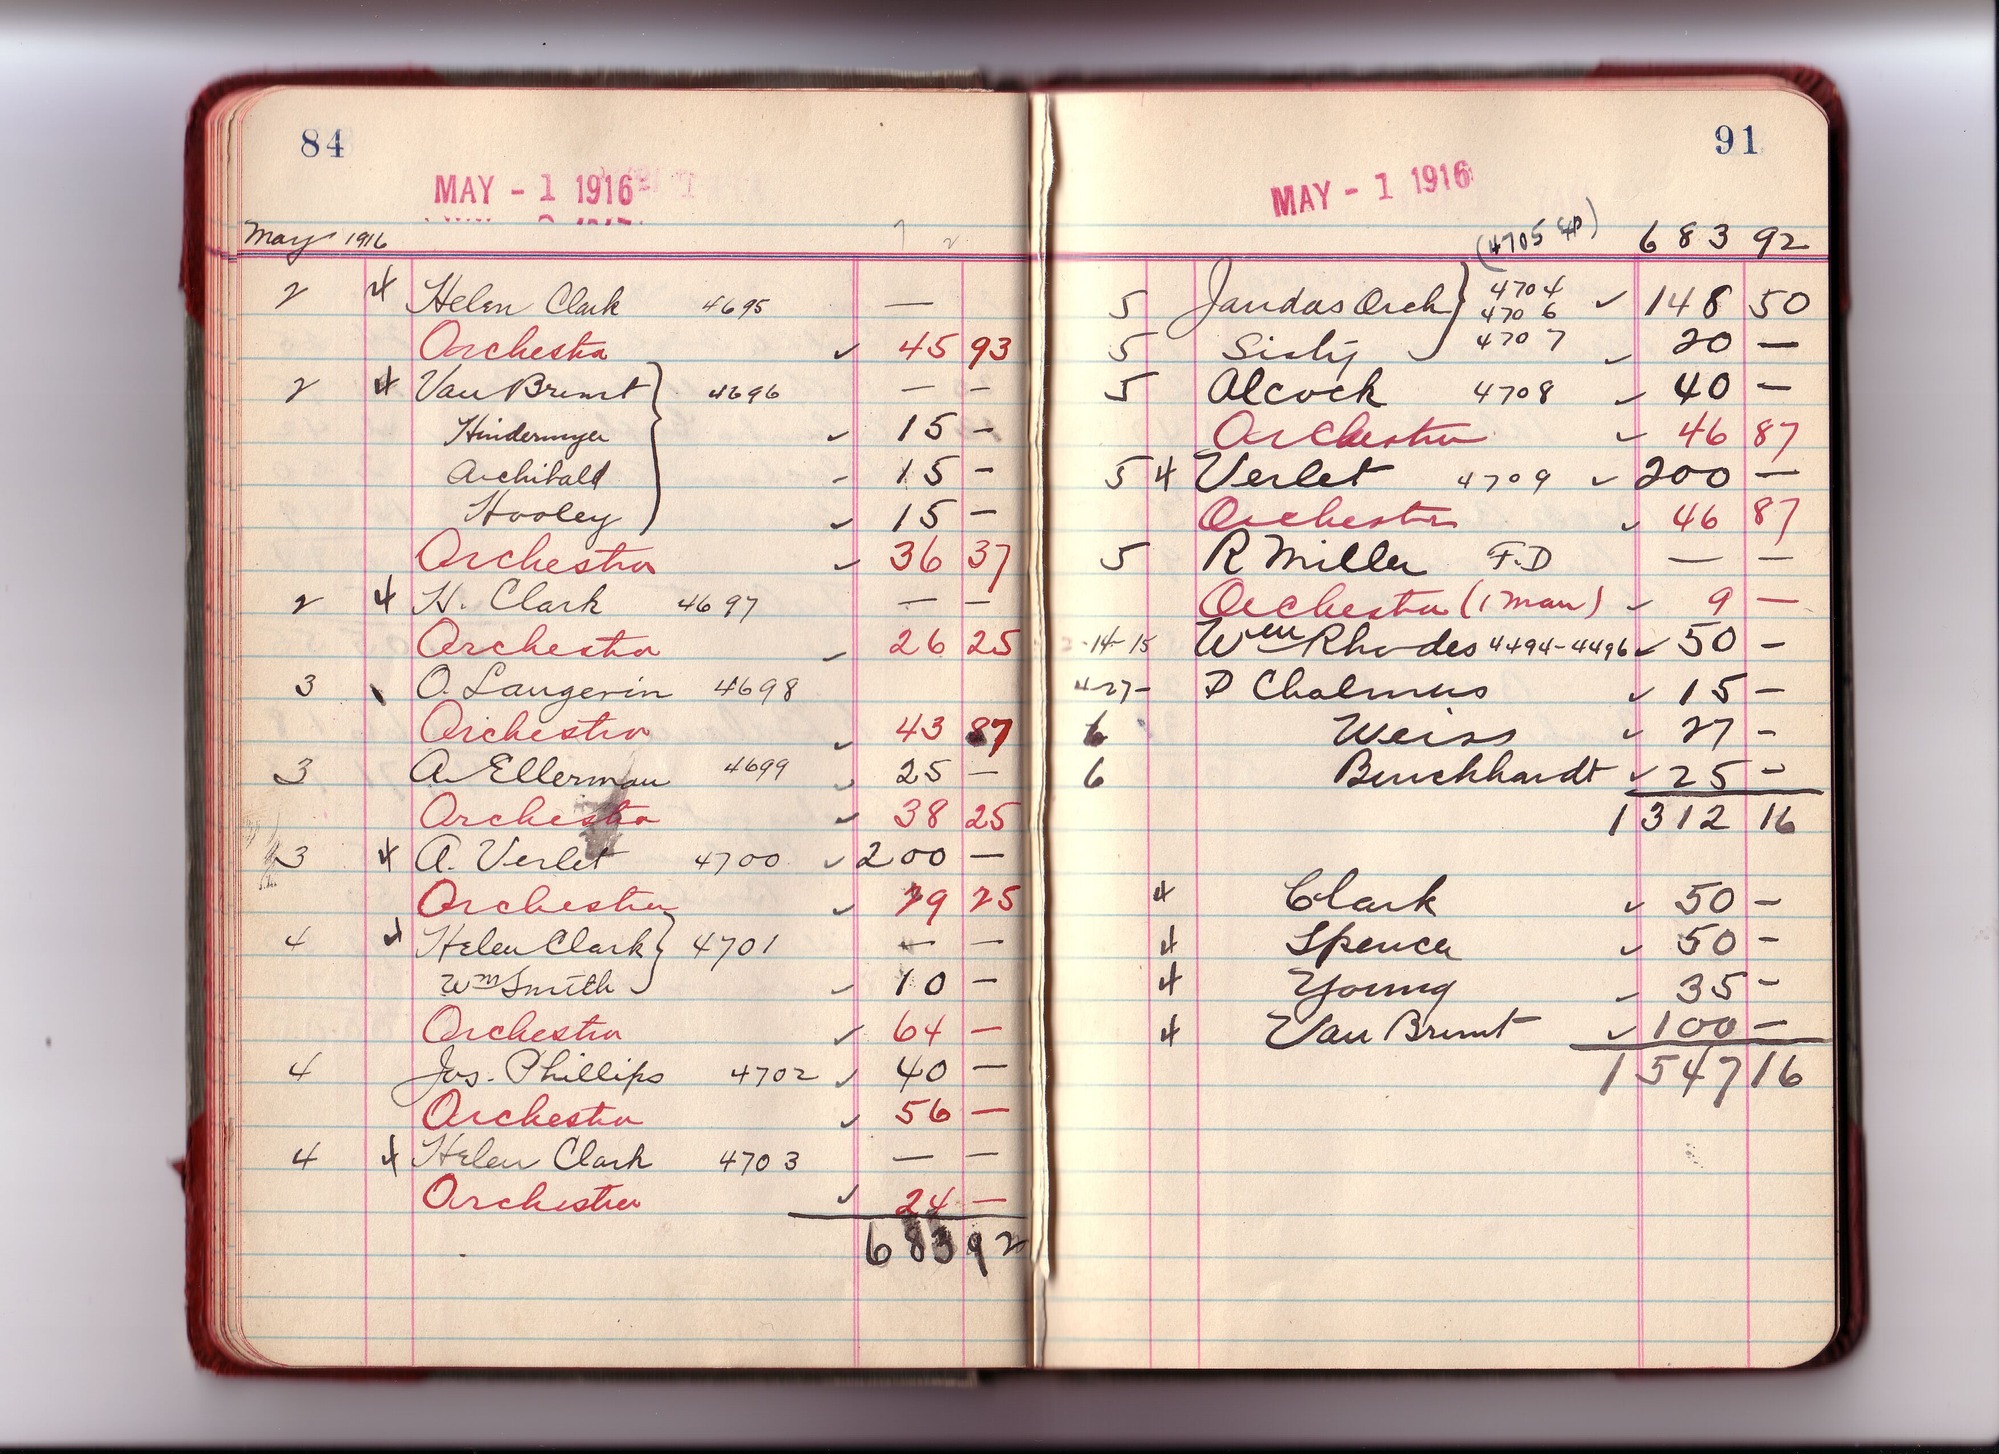 84
MAY - 1 1916
May 1916
2 4 Helen Clark 4695 —
Orchestra ✓ 45 93
2 4 Van Brunt } 4696 — —
Hindermyer ✓ 15 —
Archibald - 15 —
Hooley ✓ 15 —
Orchestra ✓ 36 37
2 4 H. Clark 4697 — —
Orchestra ✓ 26 25
3 O. Langevin 4698
Orchestra ✓ 43 87
3 A. Ellerman 4699 ✓ 25 —
Orchestra ✓ 38 25
3 4 A. Verlet 4700 ✓ 200 —
Orchestra ✓ 29 25
4 4 Helen Clark } 4701 — —
Wm Smith ✓ 10 —
Orchestra ✓ 64 —
4 Jos. Phillips 4702 ✓ 40 —
Orchestra ✓ 56 —
4 4 Helen Clark 4703 — —
Orchestra ✓ 24 —
683 92
91
MAY - 1 1916
(4705 ) 683 92
5 Jaudas Orch } 4704 ✓ 148 50
4706
5 Sisty 4707 ✓ 20 —
5 Alcock 4708 ✓ 40 —
Orchestra ✓ 46 87
5 4 Verlet 4709 ✓ 200 —
Orchestra ✓ 46 87
5 R Miller F.D — —
Orchestra (1 man) ✓ 9 —
-14-15 Wm Rhodes 4494-4496 ✓ 50 —
4-27- D Chalmers ✓ 15 —
6 Weiss ✓ 27 —
6 Burckhardt ✓ 25 —
1312 16
4 Clark ✓ 50 —
4 Spencer ✓ 50 —
4 Young ✓ 35 —
4 Van Brunt ✓ 100 —
1547 16